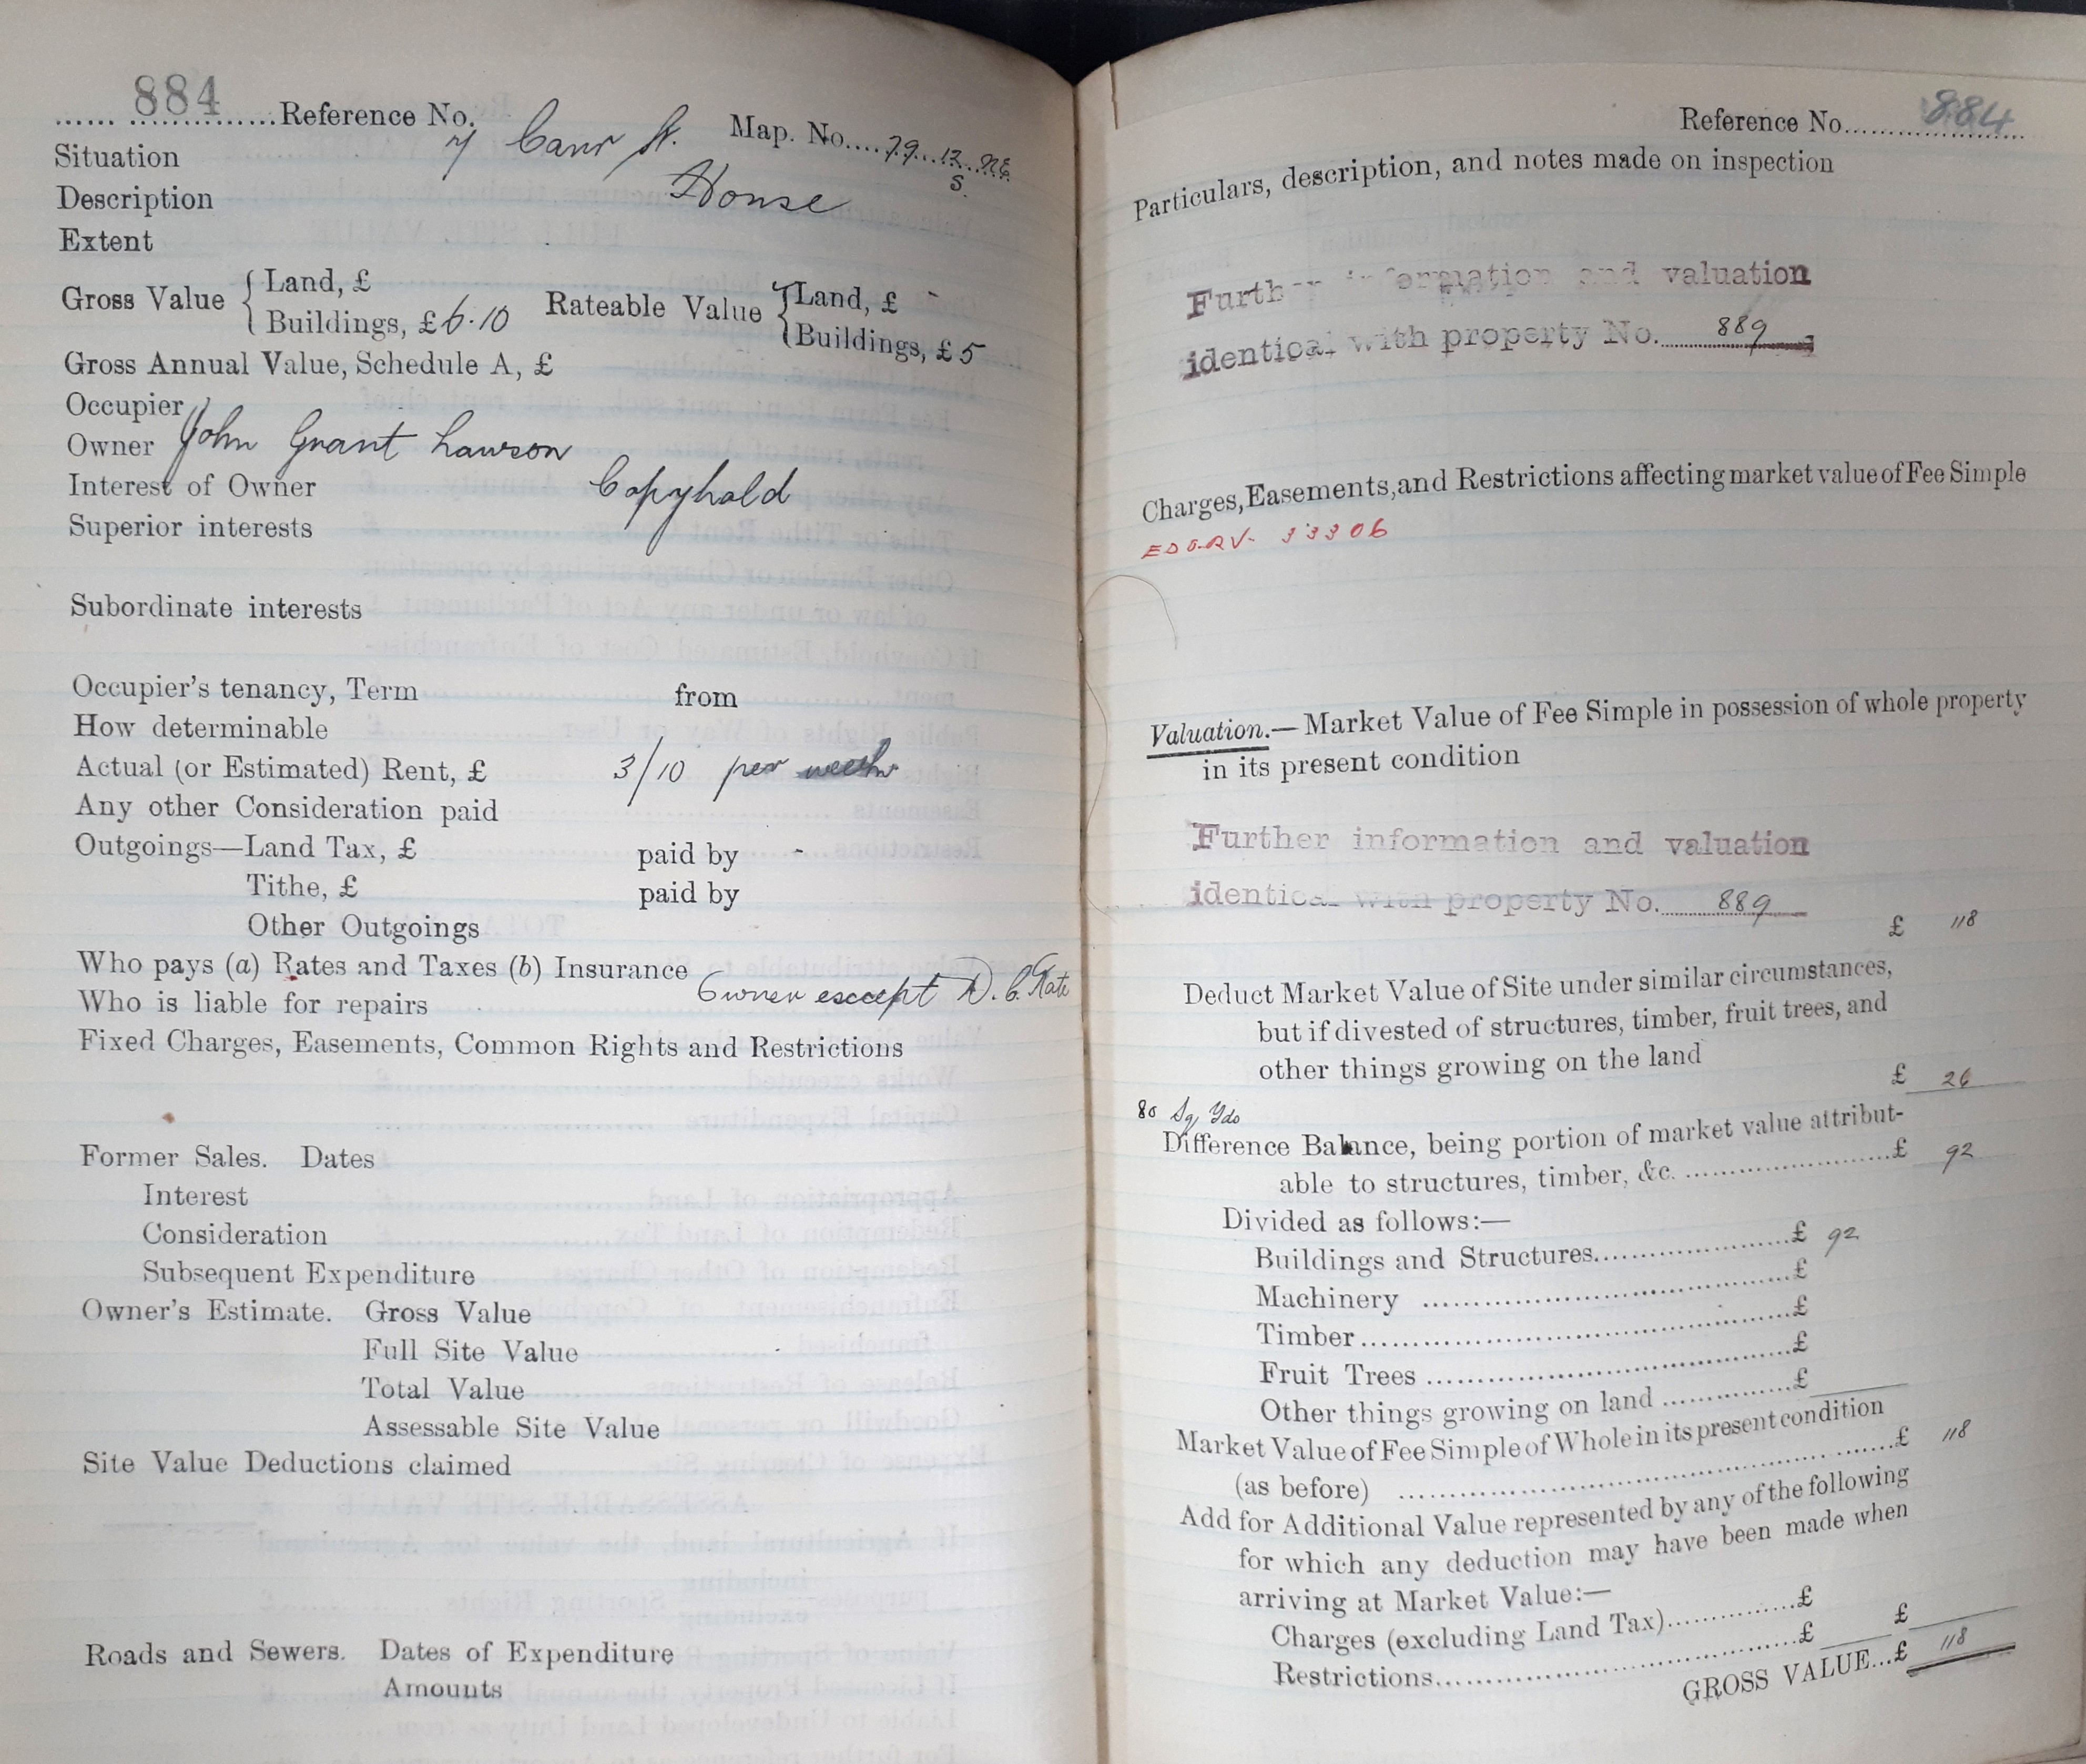 884 Reference No. Map. No. 79. 12. NE
S.
Situation 7 Carr St.
Description House
Extent
Gross Value { Land, £ Rateable Value { Land, £ -
Buildings, £ 6.10 Buildings, £ 5
Gross Annual Value, Schedule A, £
Occupier
Owner John Grant Lawson
Interest of Owner Copyhold
Superior interests
Subordinate interests
Occupier's tenancy, Term from
How determinable
Actual (or Estimated) Rent, £ 3/10 per week
Any other Consideration paid
Outgoings—Land Tax, £ paid by -
Tithe, £ paid by
Other Outgoings
Who pays (a) Rates and Taxes (b) Insurance
Who is liable for repairs Owner except D. C. Rate
Fixed Charges, Easements, Common Rights and Restrictions
Former Sales. Dates
Interest
Consideration
Subsequent Expenditure
Owner's Estimate. Gross Value
Full Site Value
Total Value
Assessable Site Value
Site Value Deductions claimed
Roads and Sewers. Dates of Expenditure
Amounts
Reference No. 884
Particulars, description, and notes made on inspection
Further information and valuation
identical with property No. 889
Charges, Easements, and Restrictions affecting market value of Fee Simple
33306
Valuation.—Market Value of Fee Simple in possession of whole property
in its present condition
Further information and valuation
identical with property No. 889
£ 118
Deduct Market Value of Site under similar circumstances,
but if divested of structures, timber, fruit trees, and
other things growing on the land
£ 26
80 Sq Yds
Difference Balance, being portion of market value attribut-
able to structures, timber, &c. £ 92
Divided as follows:—
Buildings and Structures £ 92
Machinery £
Timber £
Fruit Trees £
Other things growing on land £
Market Value of Fee Simple of Whole in its present condition
(as before) £ 118
Add for Additional Value represented by any of the following
for which any deduction may have been made when
arriving at Market Value:—
Charges (excluding Land Tax) £
Restrictions £ £
GROSS VALUE...£ 118